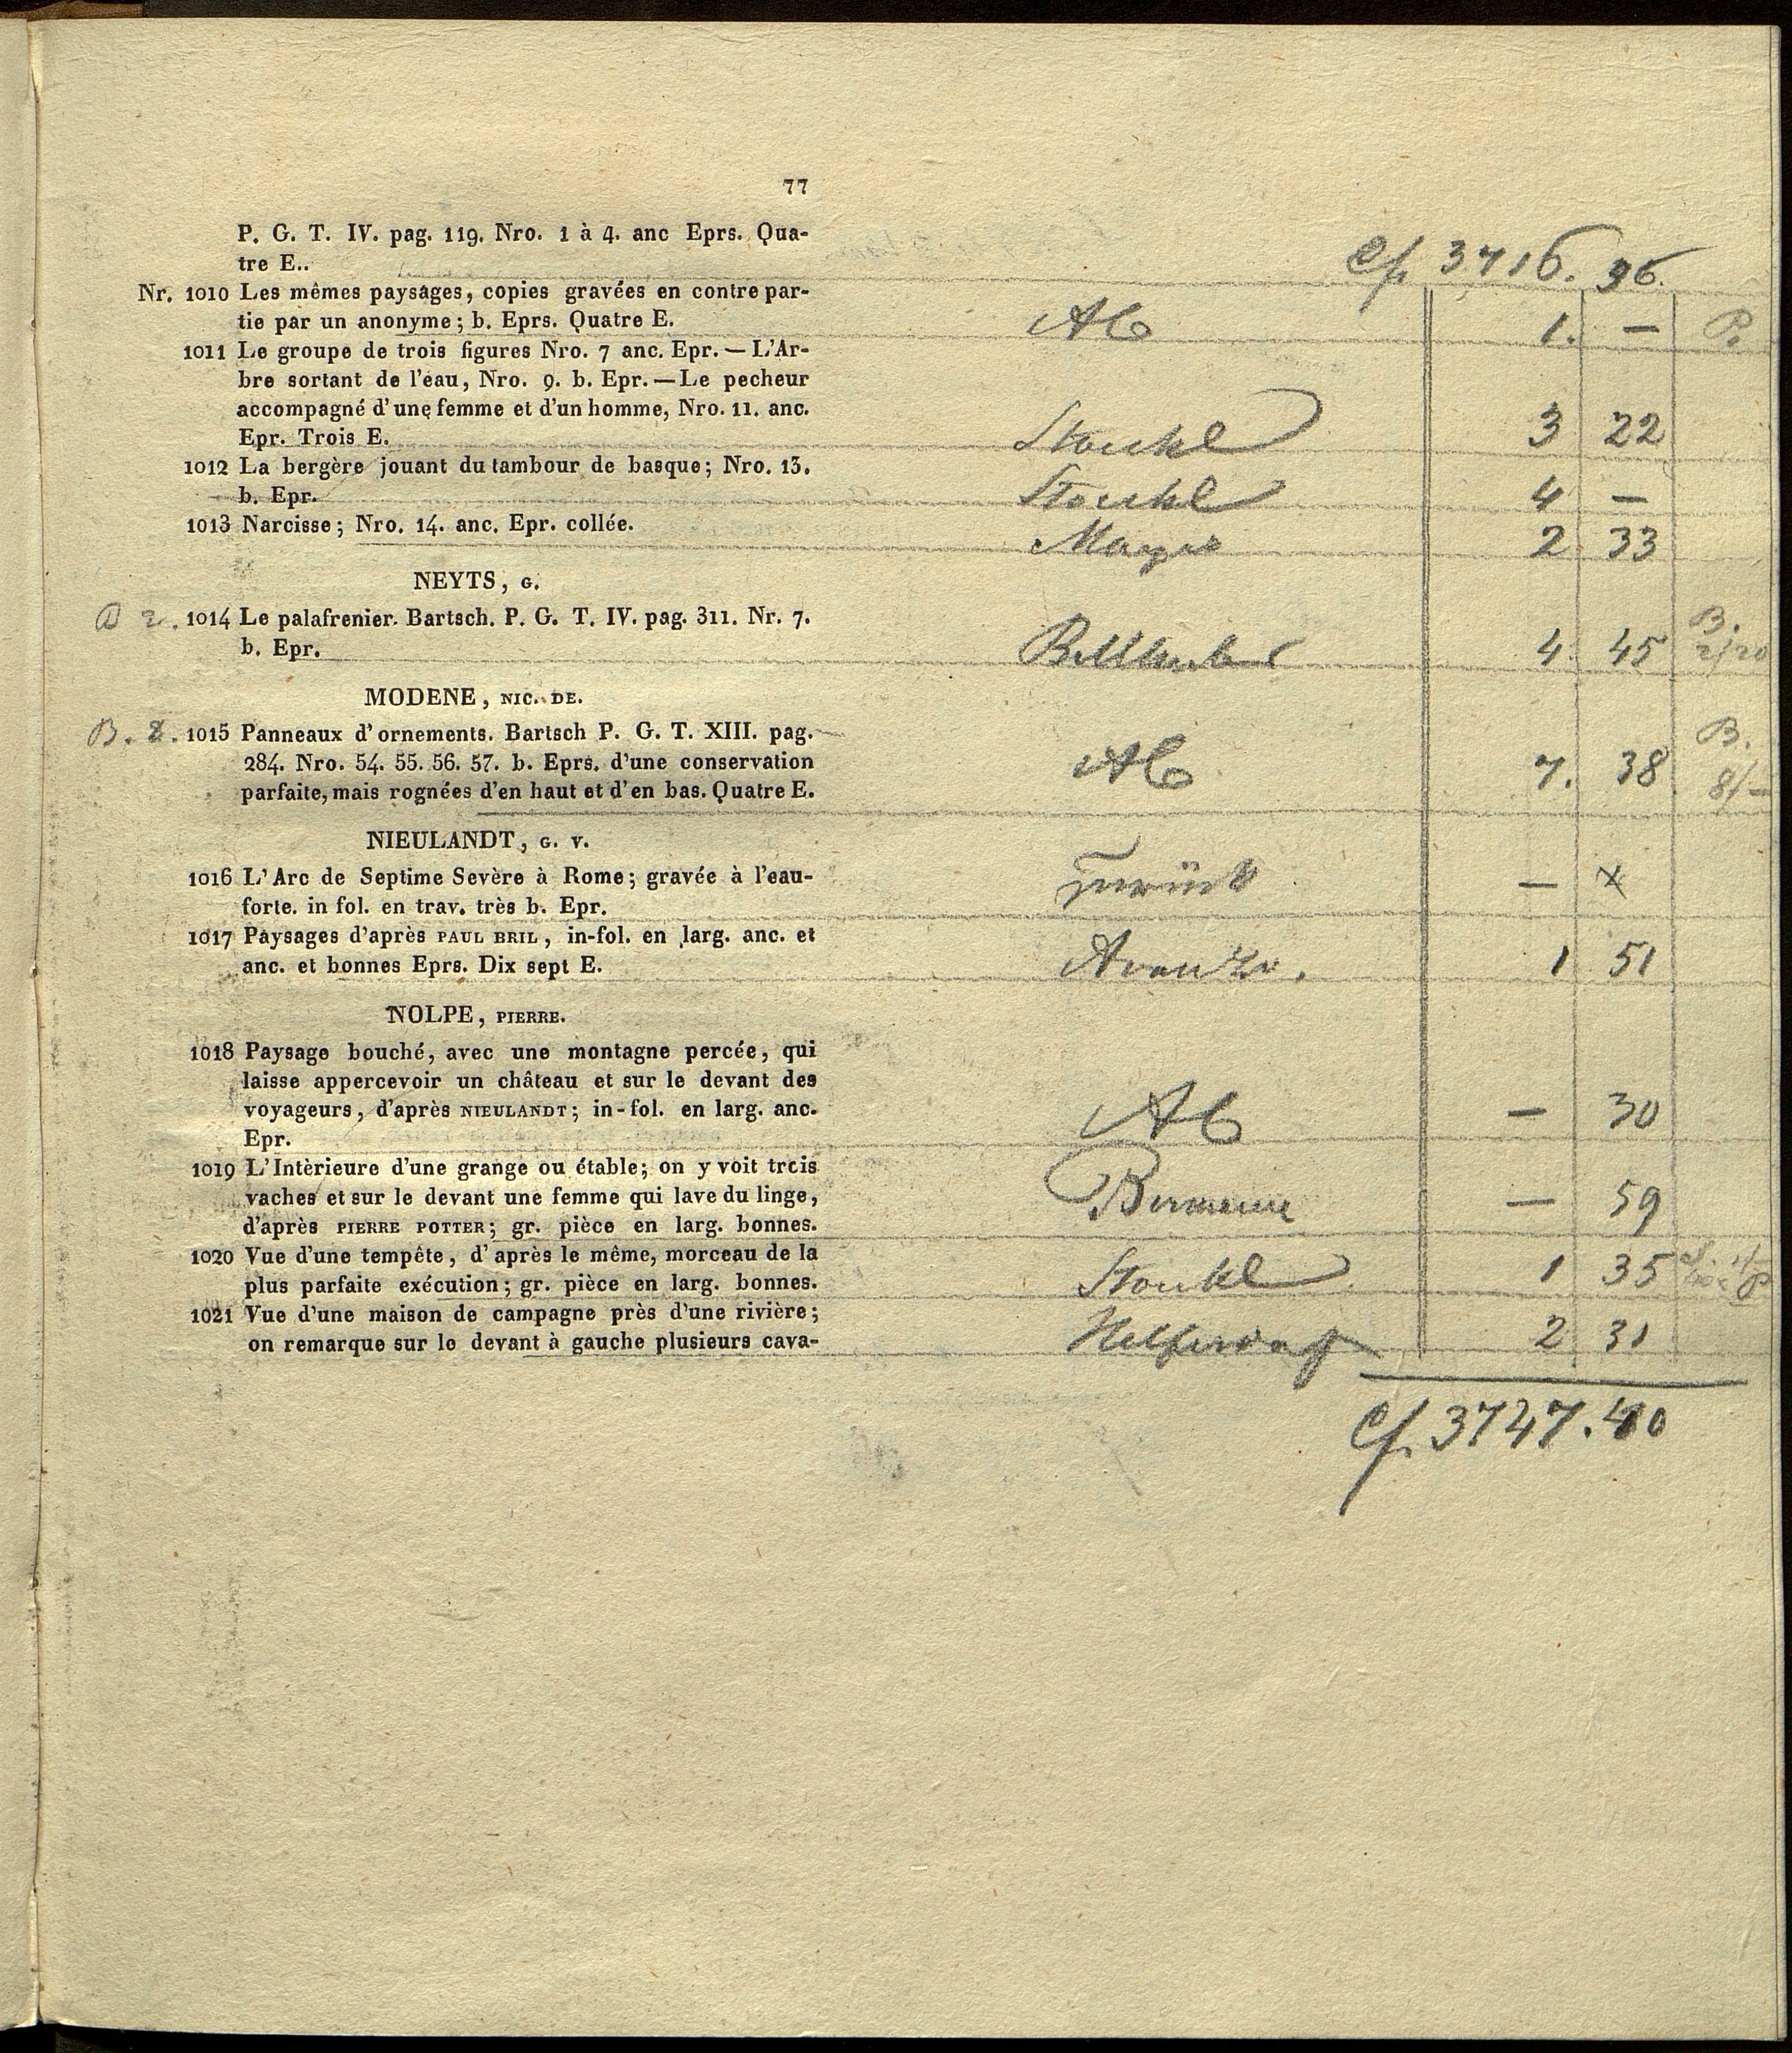 77
P. G. T. IV. pag. 119. Nro. 1 à 4. anc Eprs. Qua-
tre E..
3716. 36.
Nr. 1010 Les mêmes paysages, copies gravées en contre par-
tie par un anonyme; b. Eprs. Quatre E. 1. — P.
1011 Le groupe de trois figures Nro. 7 anc. Epr. — L'Ar-
bre sortant de l'eau, Nro. 9. b. Epr. — Le pecheur
accompagné d'une femme et d'un homme, Nro. 11. anc.
Epr. Trois E. Stoukl 3 22
1012 La bergère jouant du tambour de basque; Nro. 13.
b. Epr. Stoukl 4 —
1013 Narcisse; Nro. 14. anc. Epr. collée. 2 33
NEYTS, G.
2. 1014 Le palafrenier. Bartsch. P. G. T. IV. pag. 311. Nr. 7. B.
b. Epr. 4 45 2/20
MODENE, NIC. DE.
B. 8. 1015 Panneaux d'ornements. Bartsch P. G. T. XIII. pag. B.
284. Nro. 54. 55. 56. 57. b. Eprs. d'une conservation 7. 38 8/—
parfaite, mais rognées d'en haut et d'en bas. Quatre E.
NIEULANDT, G. V.
1016 L'Arc de Septime Sevère à Rome; gravée à l'eau- zurück — x
forte. in fol. en trav. très b. Epr.
1017 Paysages d'après PAUL BRIL, in-fol. en larg. anc. et
anc. et bonnes Eprs. Dix sept E. 1 51
NOLPE, PIERRE.
1018 Paysage bouché, avec une montagne percée, qui
laisse appercevoir un château et sur le devant des
voyageurs, d'après NIEULANDT; in-fol. en larg. anc. — 30
Epr.
1019 L'Intèrieure d'une grange ou étable; on y voit trois
vaches et sur le devant une femme qui lave du linge, — 59
d'après PIERRE POTTER; gr. pièce en larg. bonnes.
1020 Vue d'une tempête, d'après le même, morceau de la
plus parfaite exécution; gr. pièce en larg. bonnes. Stoukl 1 35
1021 Vue d'une maison de campagne près d'une rivière;
on remarque sur le devant à gauche plusieurs cava- 2 31
3747. 40